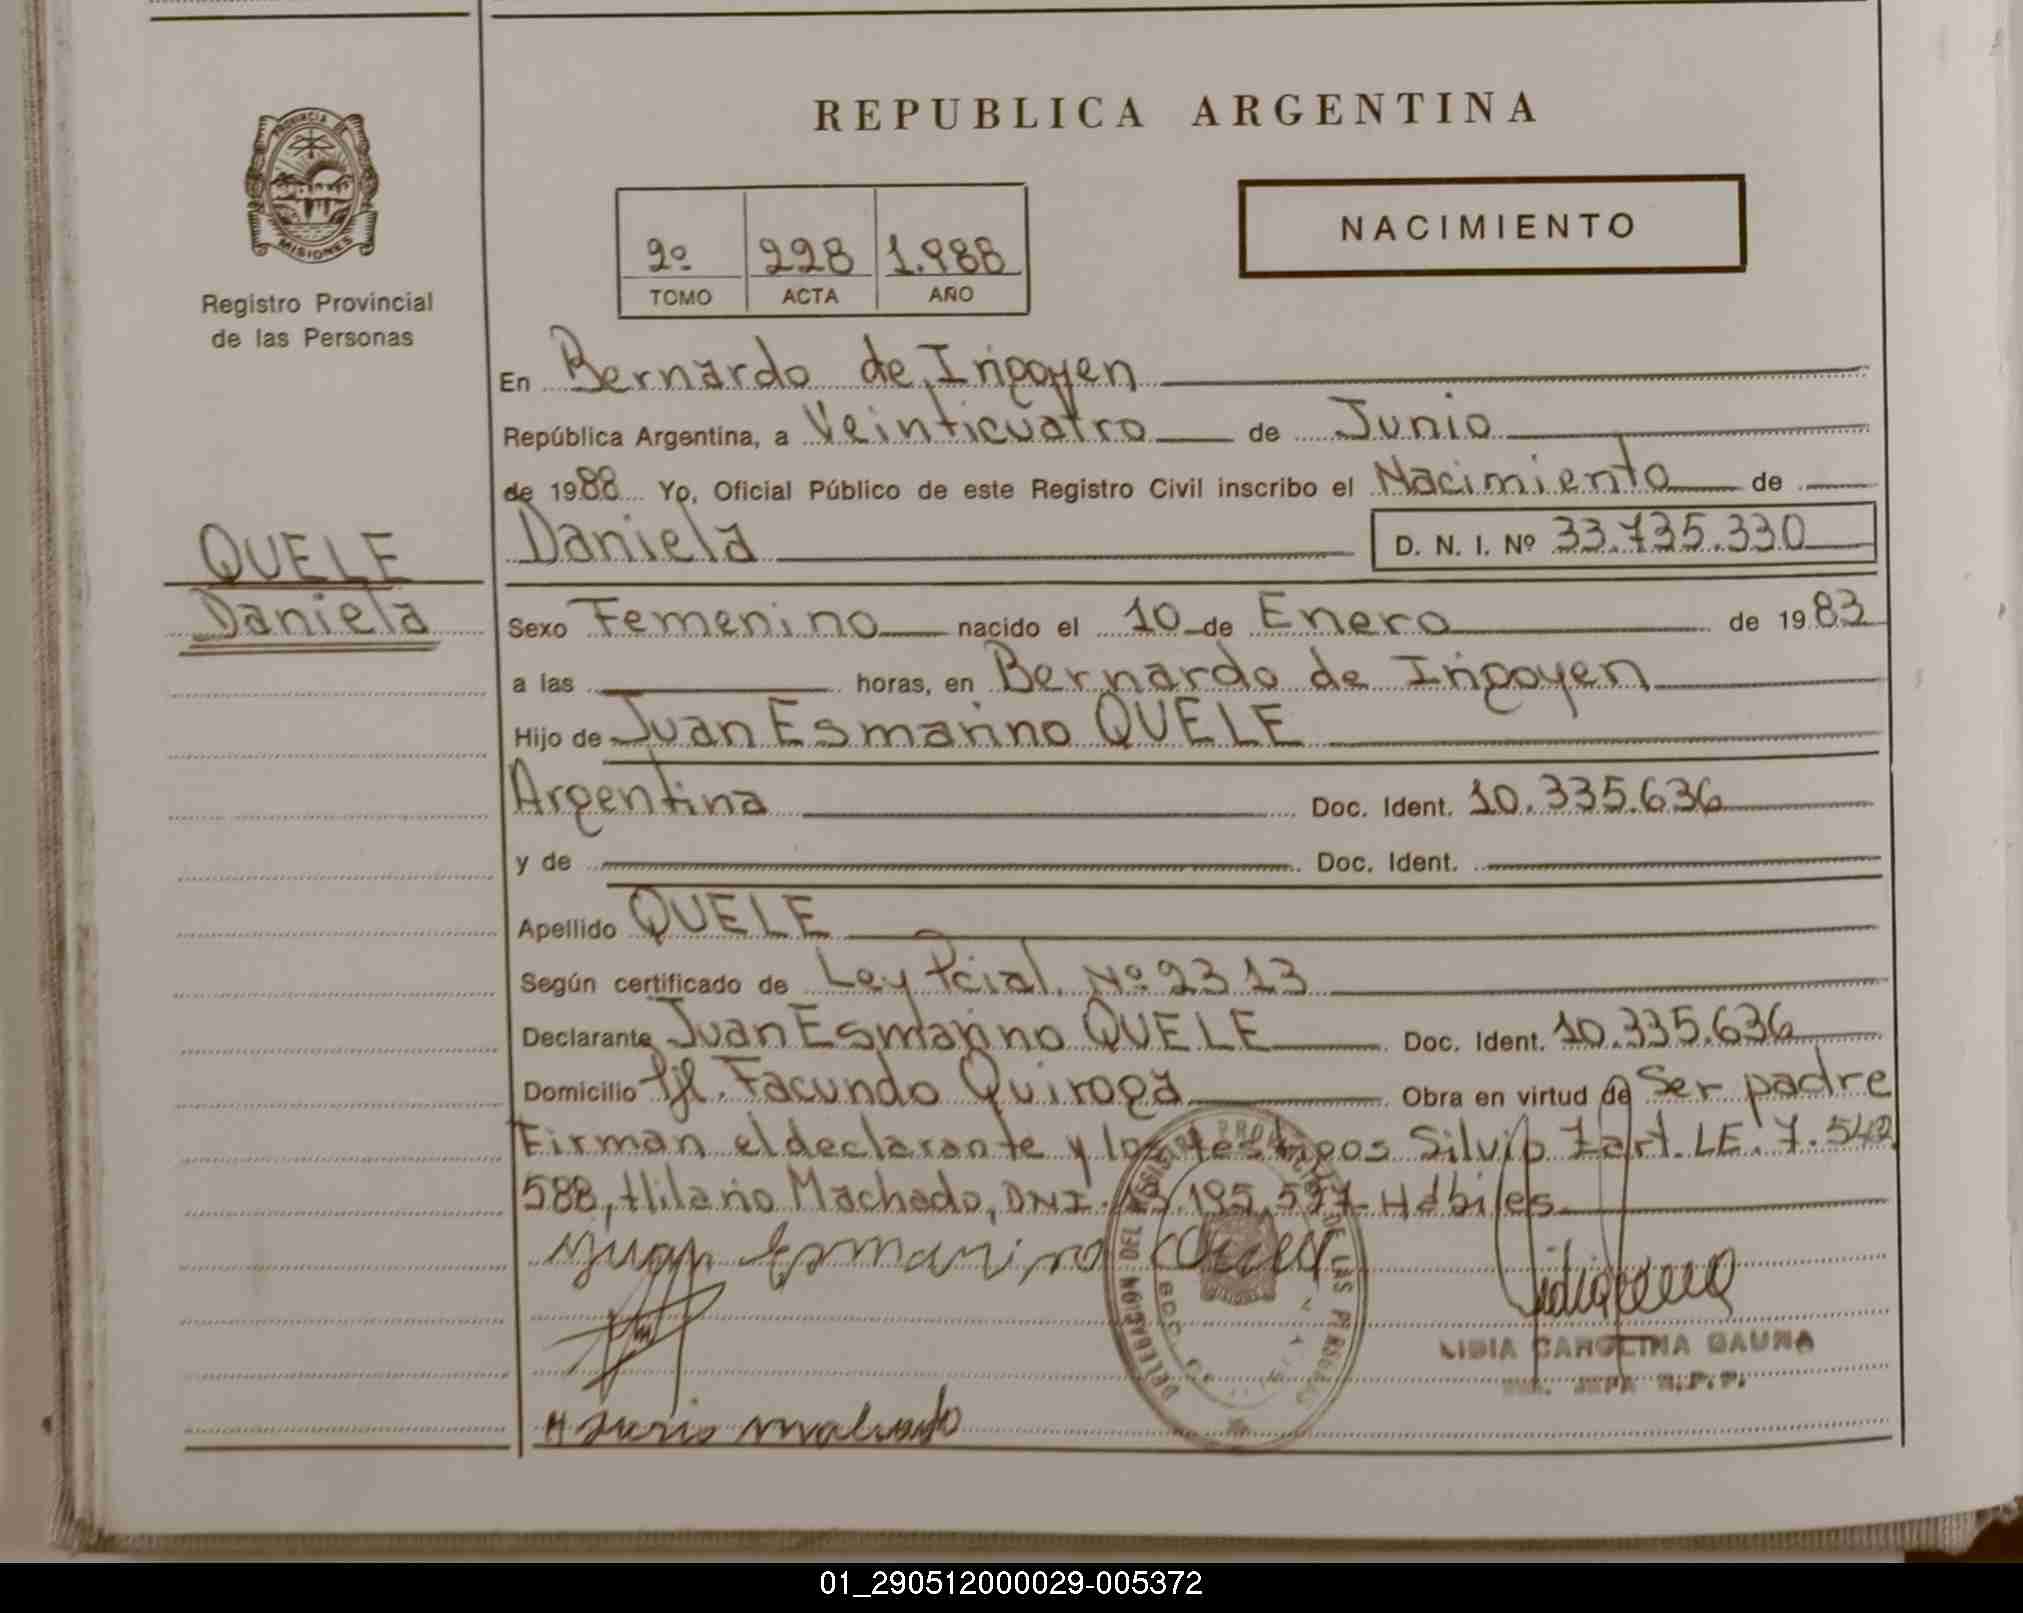 REPUBLICA ARGENTINA
PROVINCIA DE
MISIONES
Registro Provincial
de las Personas
NACIMIENTO
2º 228 1.988
TOMO ACTA AÑO
En Bernardo de Irigoyen
República Argentina, a Veinticuatro de Junio
de 1988 Yo, Oficial Público de este Registro Civil inscribo el Nacimiento de
Daniela D. N. I. Nº 33.735.330
QUELE
Daniela
Sexo Femenino nacido el 10 de Enero de 1983
a las horas, en Bernardo de Irigoyen
Hijo de Juan Esmarino QUELE
Argentina Doc. Ident. 10.335.636
y de Doc. Ident.
Apellido QUELE
Según certificado de Ley Pcial. Nº 2313
Declarante Juan Esmarino QUELE Doc. Ident. 10.335.636
Domicilio Facundo Quiroga Obra en virtud de Ser padre
Firman el declarante y los testigos Silvio Zart. LE. 7.542
588, Hilario Machado, DNI. 13.195.597 Hábiles.
Juan Esmarino
DELEGACION DEL REGISTRO PROVINCIAL DE LAS PERSONAS
LIDIA CAROLINA GAUNA
JEFA R.P.P.
01_290512000029-005372